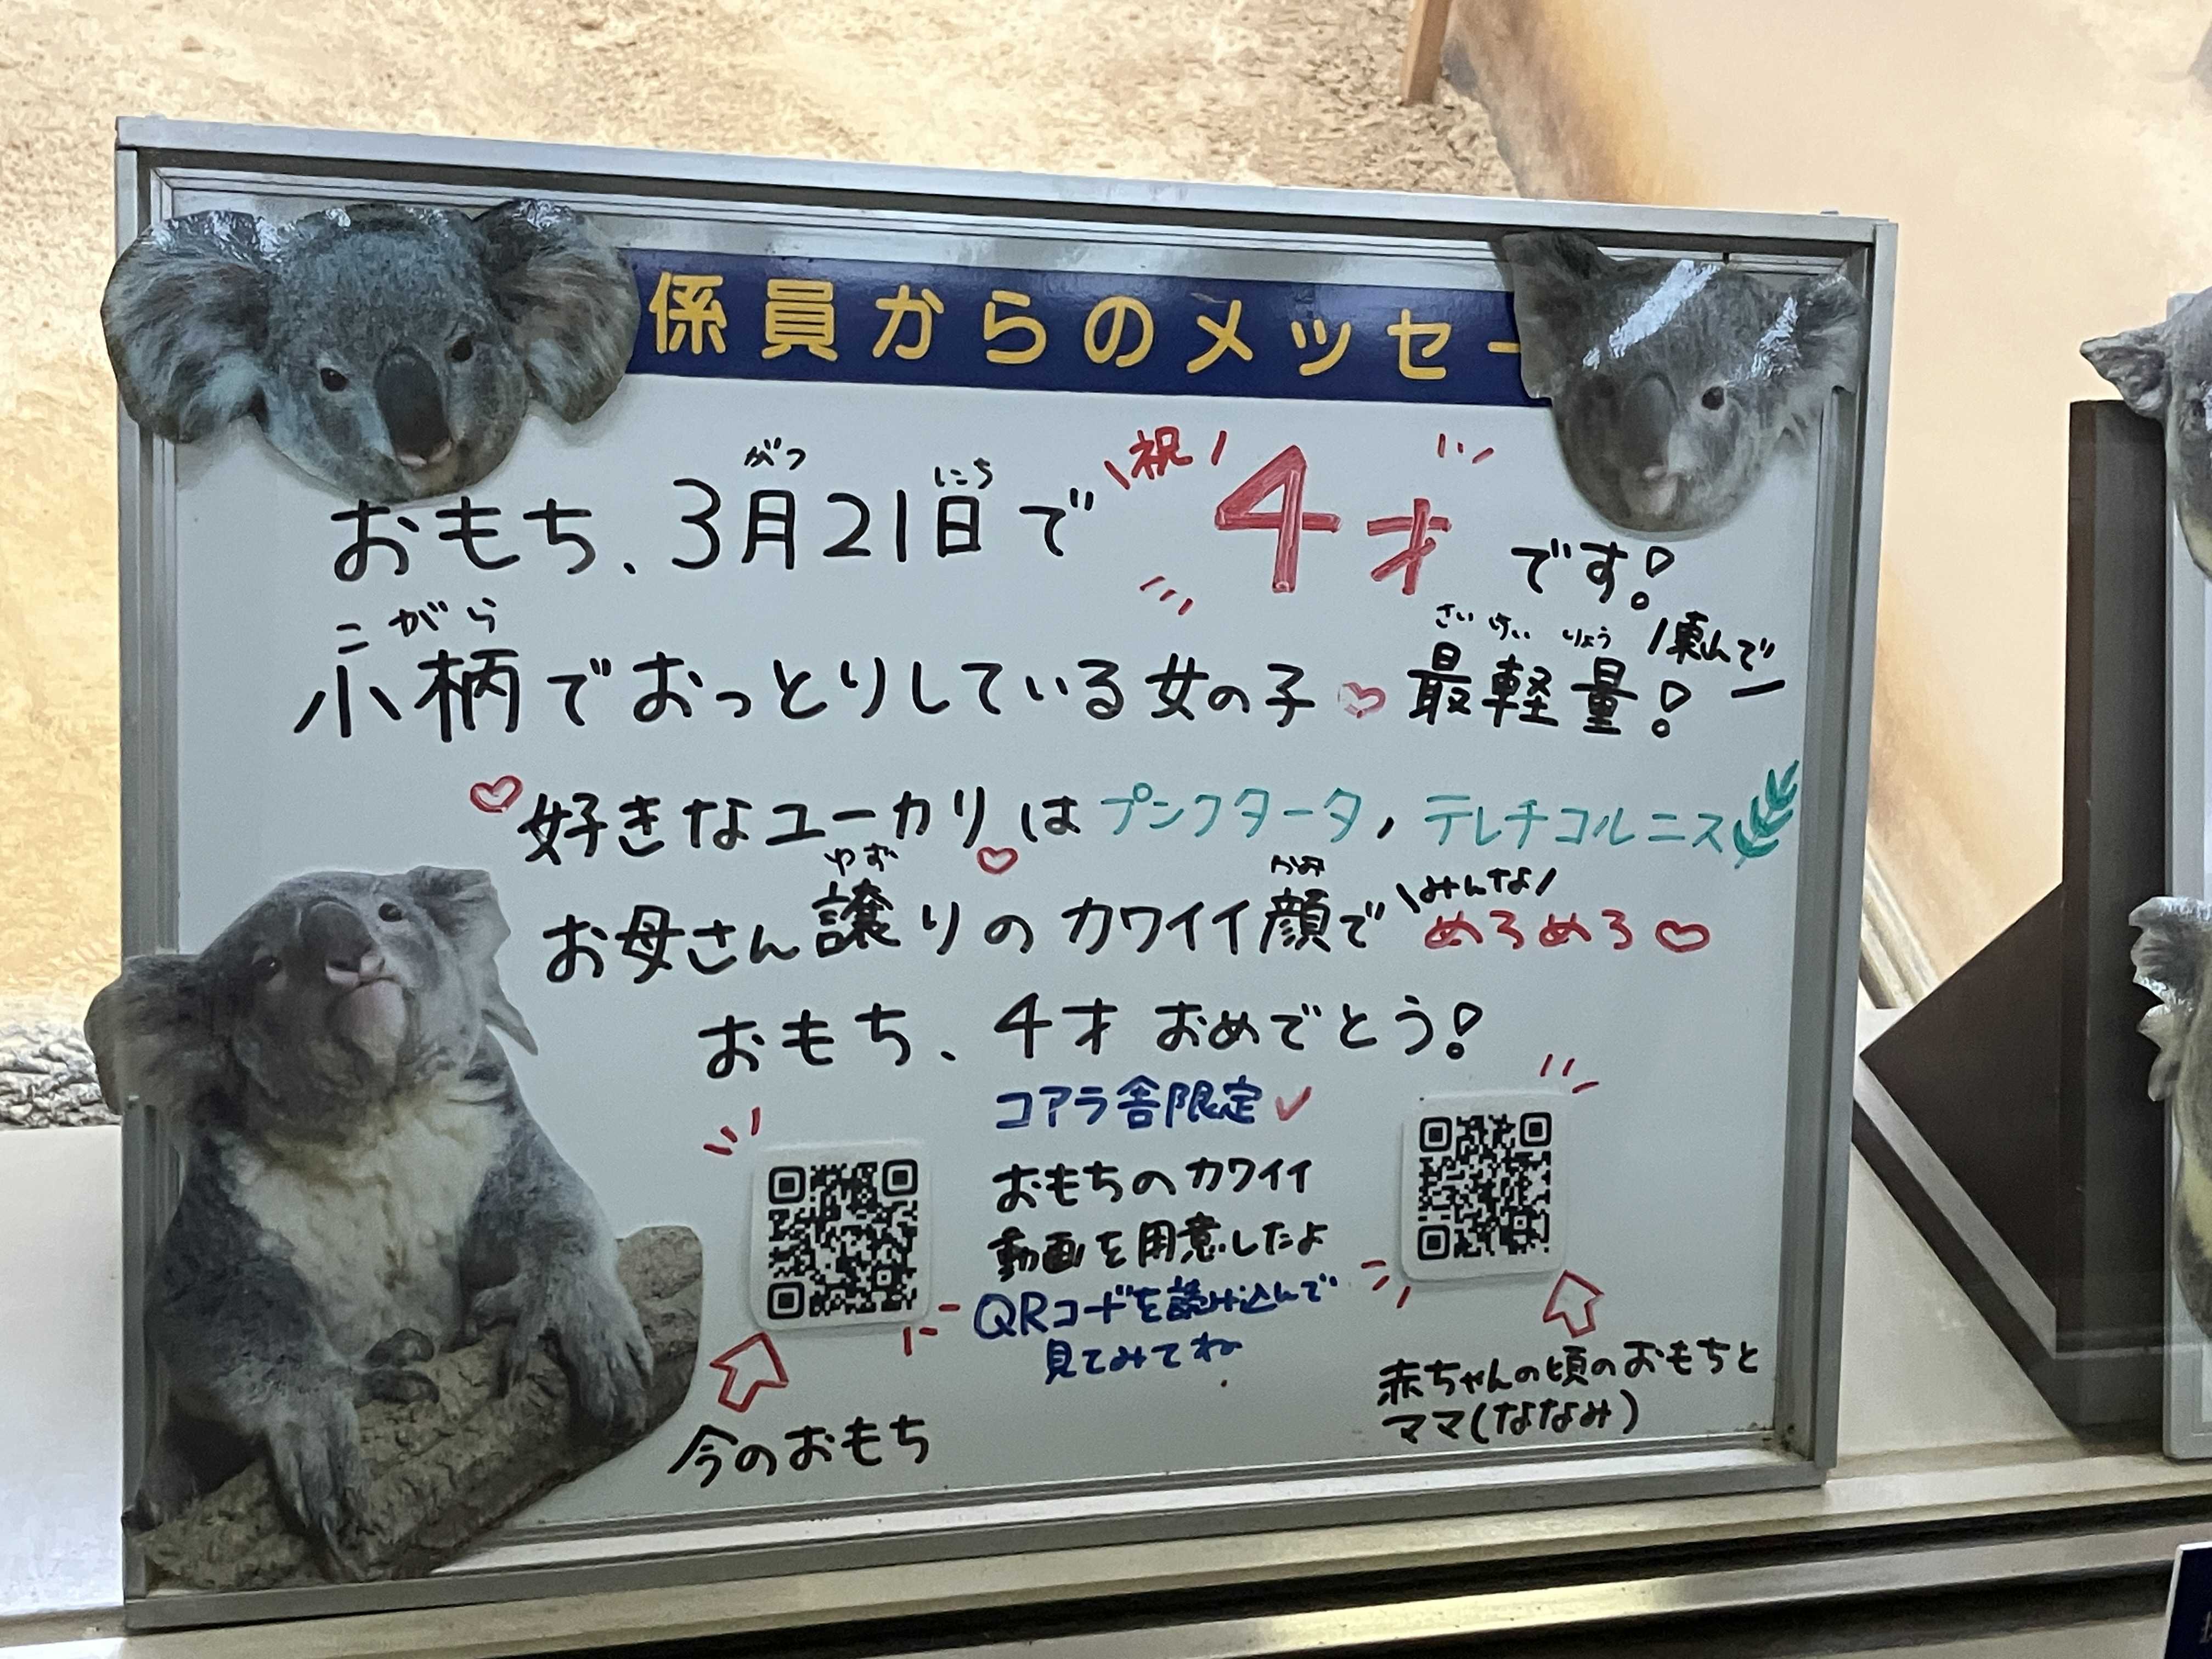 係員からのメッセー
おもち、3月21日で 祝 4才です!
がつ にち
こがら
小柄でおっとりしている女の子♡最軽量!
さいけいりょう
東山で
♡好きなユーカリは プンクタータ, テレチコルニス
お母さん譲りのカワイイ顔で めろめろ♡
ゆず かお
みんな
おもち、4才 おめでとう!
コアラ舎限定✓
おもちのカワイイ
動画を用意したよ
QRコードを読み込んで
見てみてね
今のおもち
赤ちゃんの頃のおもちと
ママ(ななみ)